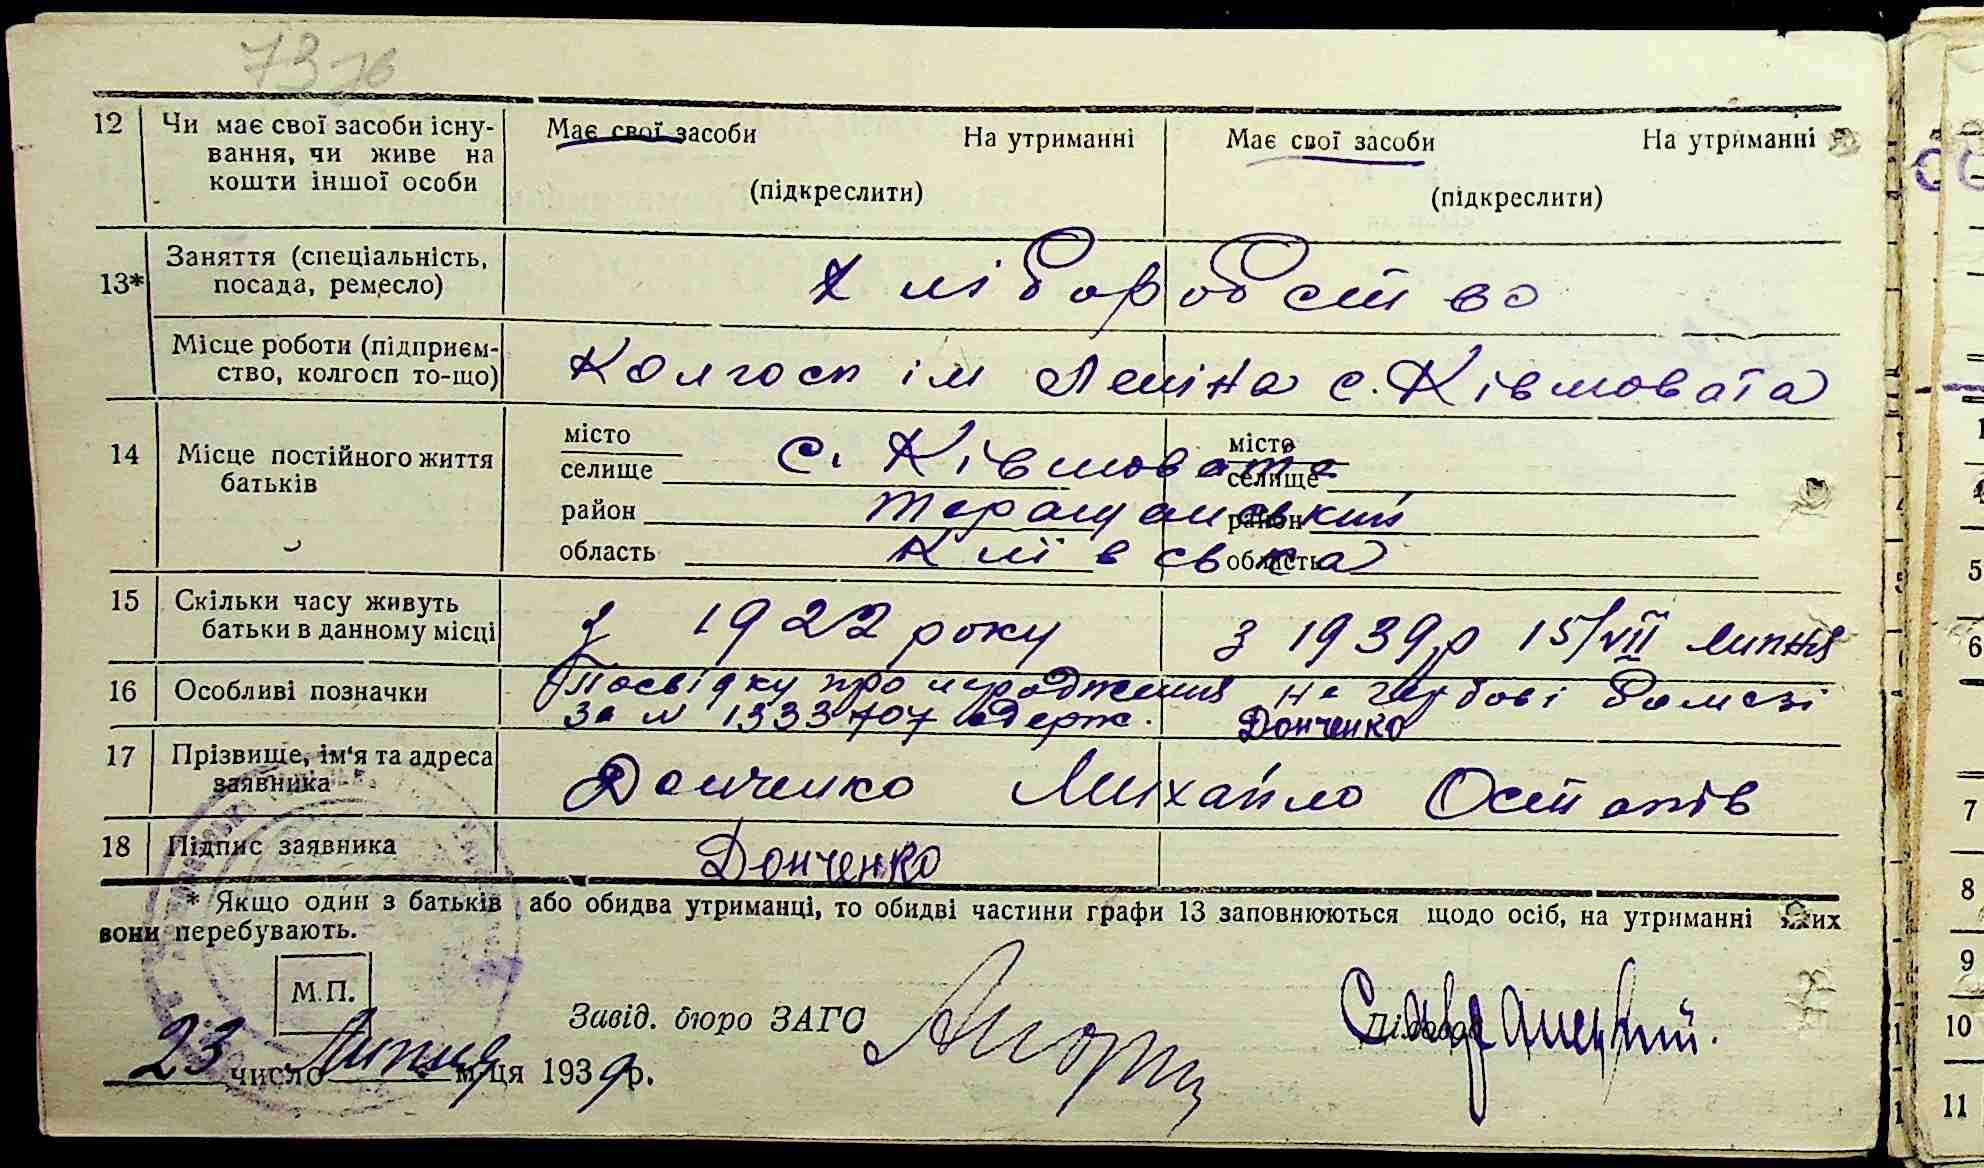 73
12 Чи має свої засоби існу-
вання, чи живе на
кошти іншої особи
Має свої засоби На утриманні
(підкреслити)
Має свої засоби На утриманні
(підкреслити)
13* Заняття (спеціальність,
посада, ремесло)
Хліборобство
Місце роботи (підприєм-
ство, колгосп то-що)
Колгосп ім Леніна с. Ківшовата
14 Місце постійного життя
батьків
місто
селище
район
область
с. Ківшовата
Таращанський
Київська
місто
селище
район
область
15 Скільки часу живуть
батьки в данному місці
з 1922 року
з 1939 р 15/VII липня
16 Особливі позначки
Посвідку про народження на гербові бомазі
за № 1333707 одерж. Донченко
17 Прізвище, ім'я та адреса
заявника
Донченко Михайло Остапів
18 Підпис заявника
Донченко
* Якщо один з батьків або обидва утриманці, то обидві частини графи 13 заповнюються щодо осіб, на утриманні яких
вони перебувають.
М.П.
Завід. бюро ЗАГС
Діловод
23 число Липня м-ця 1939 р.
1
5
6
7
8
9
10
11